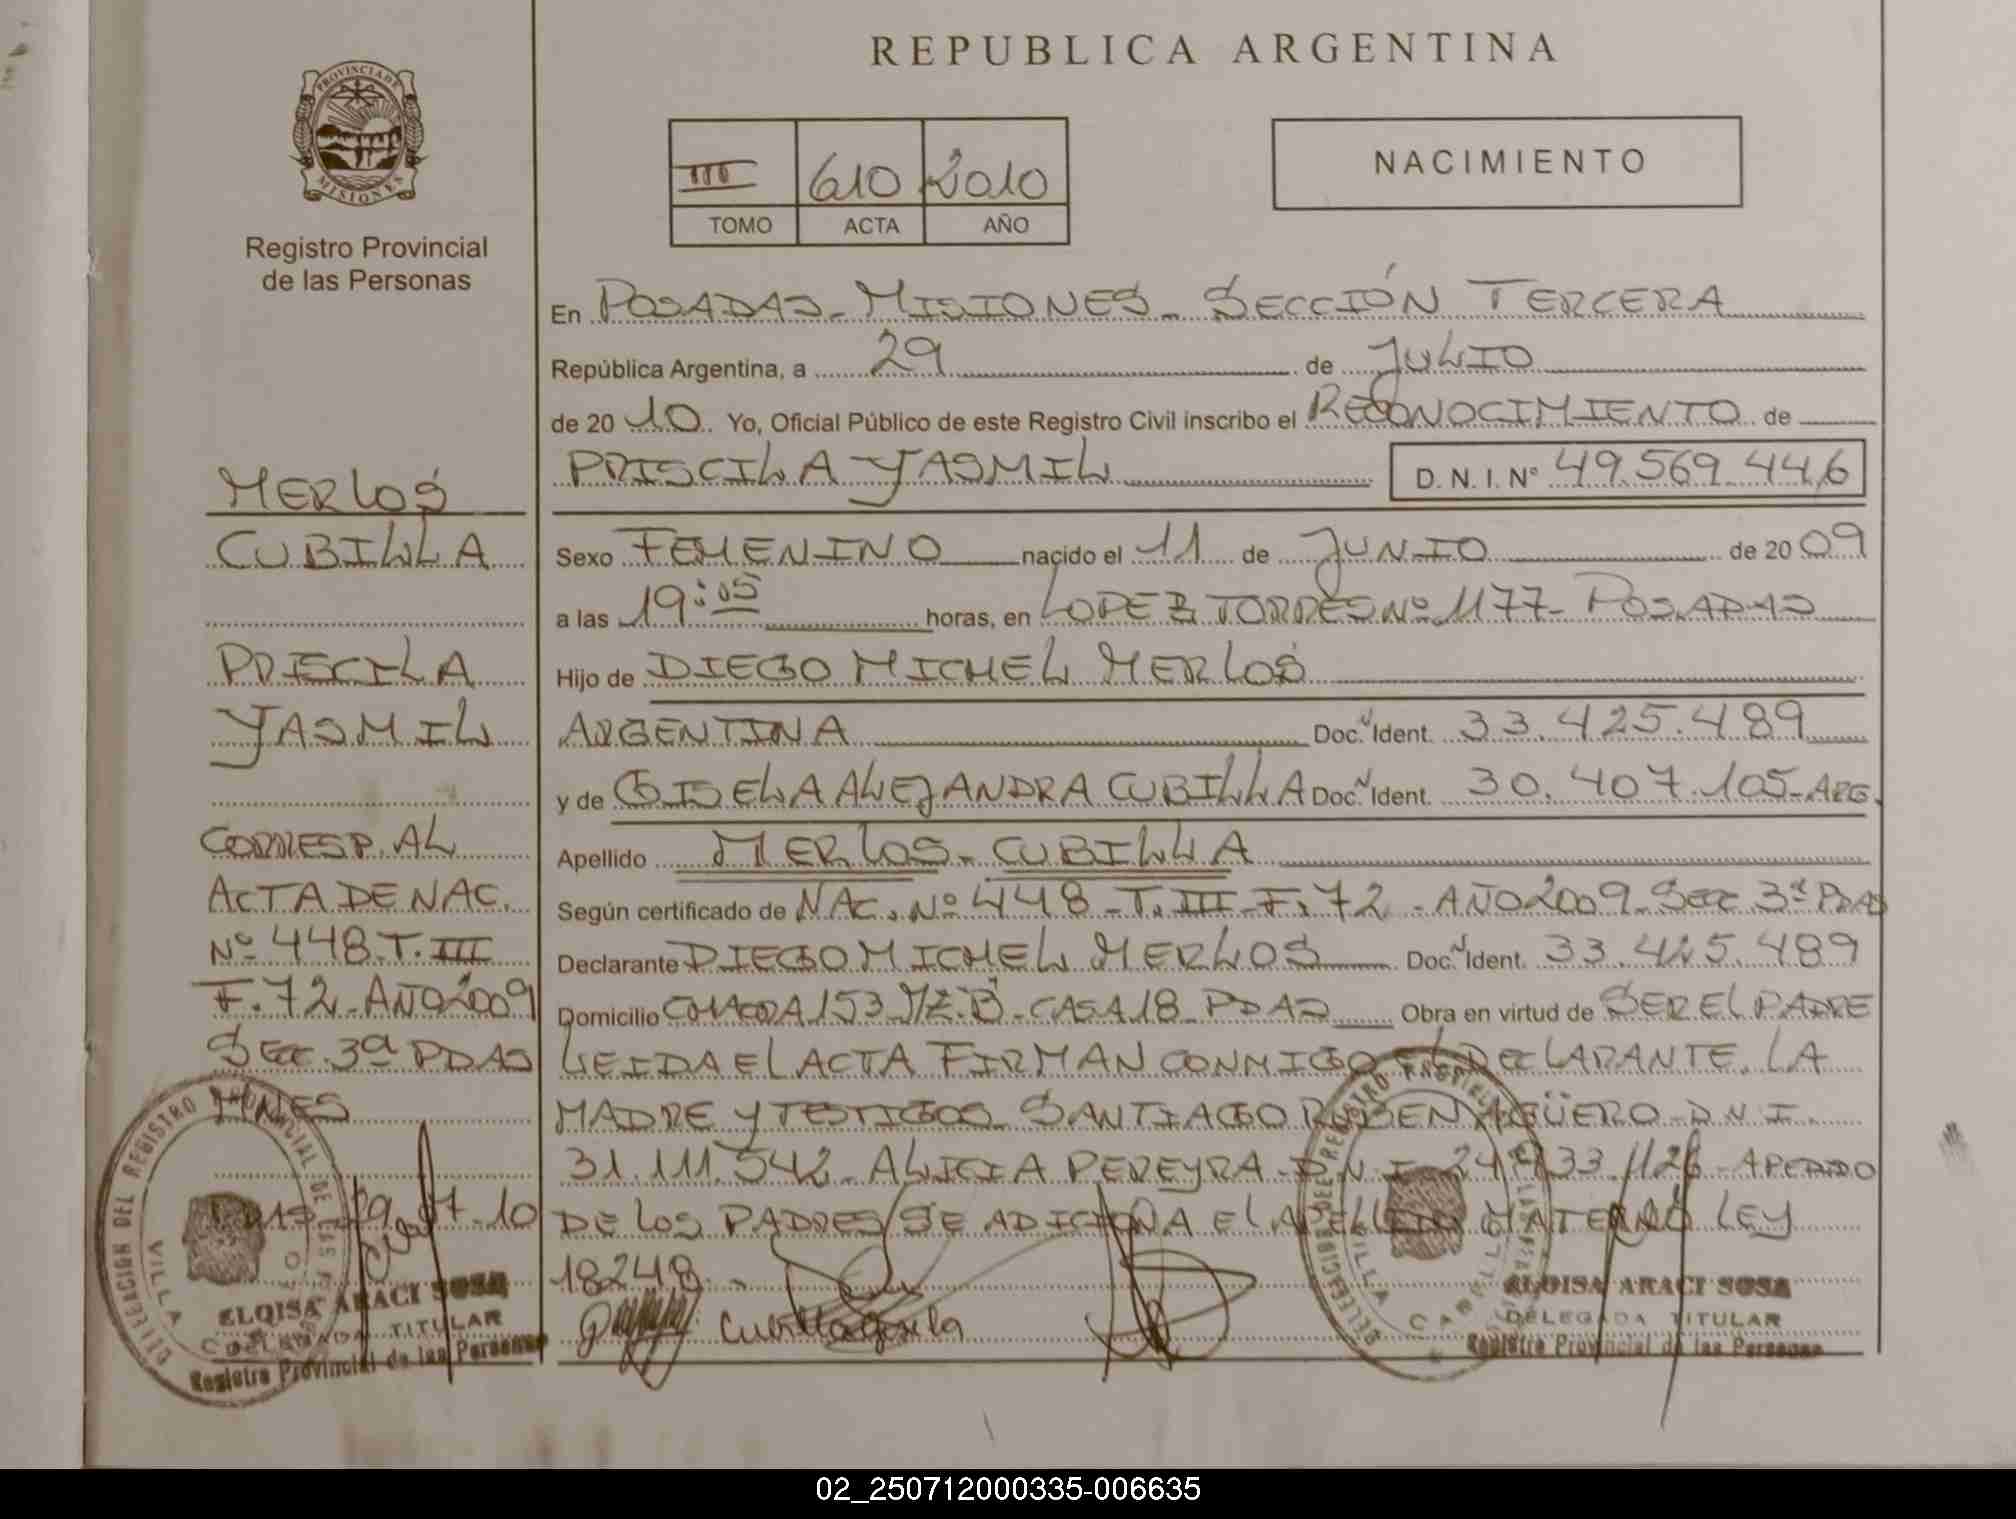 REPUBLICA ARGENTINA
PROVINCIA DE
MISIONES
Registro Provincial
de las Personas
III 610 2010
TOMO ACTA AÑO
NACIMIENTO
En POSADAS - MISIONES - SECCIÓN TERCERA
República Argentina, a 29 de JULIO
de 2010 Yo, Oficial Público de este Registro Civil inscribo el RECONOCIMIENTO de
PRISCILA YASMIL D. N. I. Nº 49.569.446
Sexo FEMENINO nacido el 11 de JUNIO de 2009
a las 19:05 horas, en LOPEZ TORRES Nº 1177 - POSADAS
Hijo de DIEGO MICHEL MERLOS
ARGENTINA Doc. Ident. 33.425.489
y de GISELA ALEJANDRA CUBILLA Doc. Ident. 30.407.105 - ARG.
Apellido MERLOS - CUBILLA
Según certificado de NAC. Nº 448 - T. III - F. 72 - AÑO 2009 - SECC 3ª PDAS
Declarante DIEGO MICHEL MERLOS Doc. Ident. 33.425.489
Domicilio CHACRA 153 MZ. B - CASA 18 - PDAS Obra en virtud de SER EL PADRE
LEIDA EL ACTA FIRMAN CONMIGO EL DECLARANTE, LA
MADRE Y TESTIGOS SANTIAGO RUBEN AGÜERO - D.N.I.
31.111.542 - ALICIA PEREYRA - D.N.I. A PEDIDO
DE LOS PADRES SE ADICIONA EL APELLIDO MATERNO LEY
18248
Cubilla Gisela
ELOISA ARACI SOSA
DELEGADA TITULAR
Registro Provincial de las Personas
MERLOS
CUBILLA
PRICILA
YASMIL
CORRESP. AL
ACTA DE NAC.
Nº 448 T. III
F. 72 - AÑO 2009
SECC. 3ª PDAS
MNES
29-07-10
ELOISA ARACI SOSA
DELEGADA TITULAR
Registro Provincial de las Personas
02_250712000335-006635